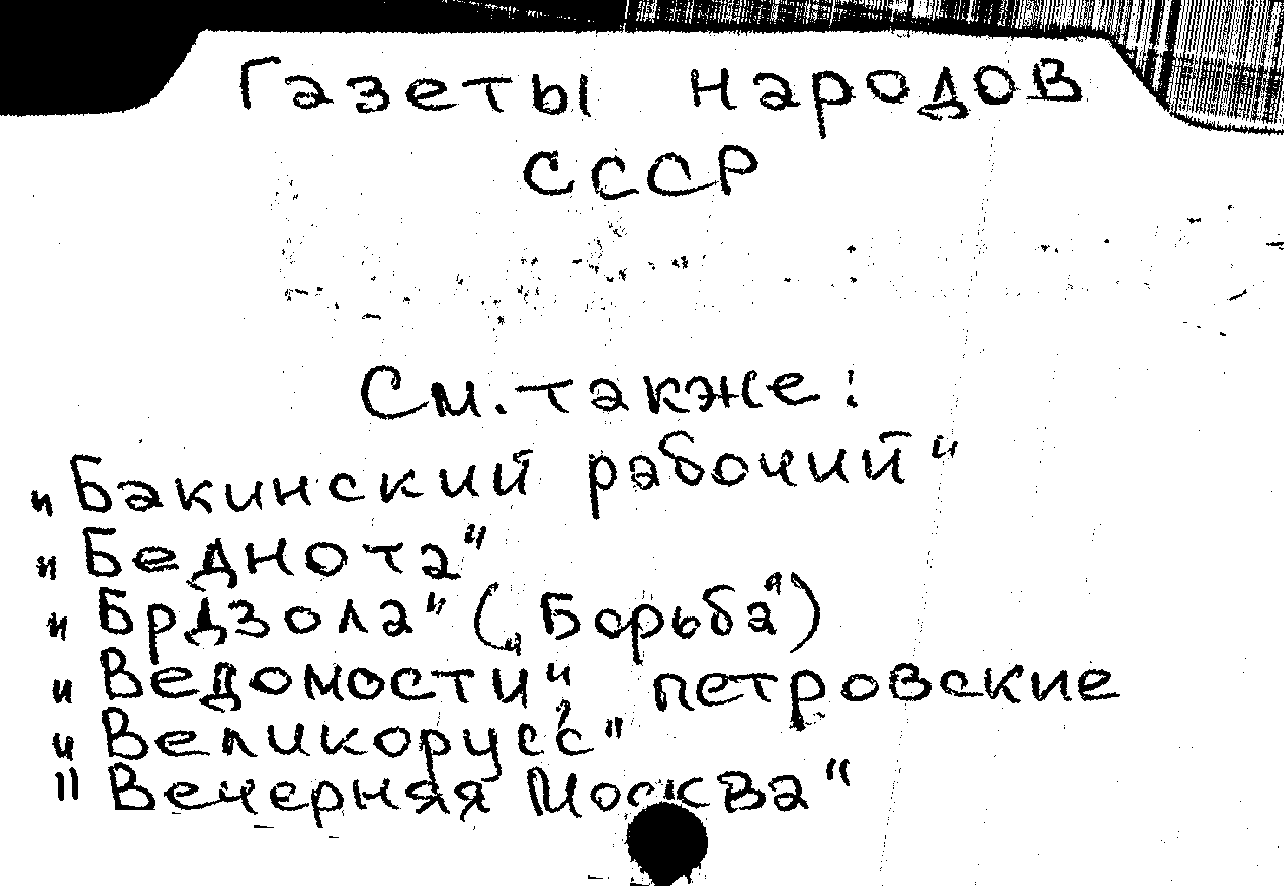 Газеты народов
СССР
См. также:
„Бакинский рабочий"
„Беднота"
„Брдзола" („Борьба")
„Ведомости" петровские
„Великорусс"
"Вечерняя Москва"